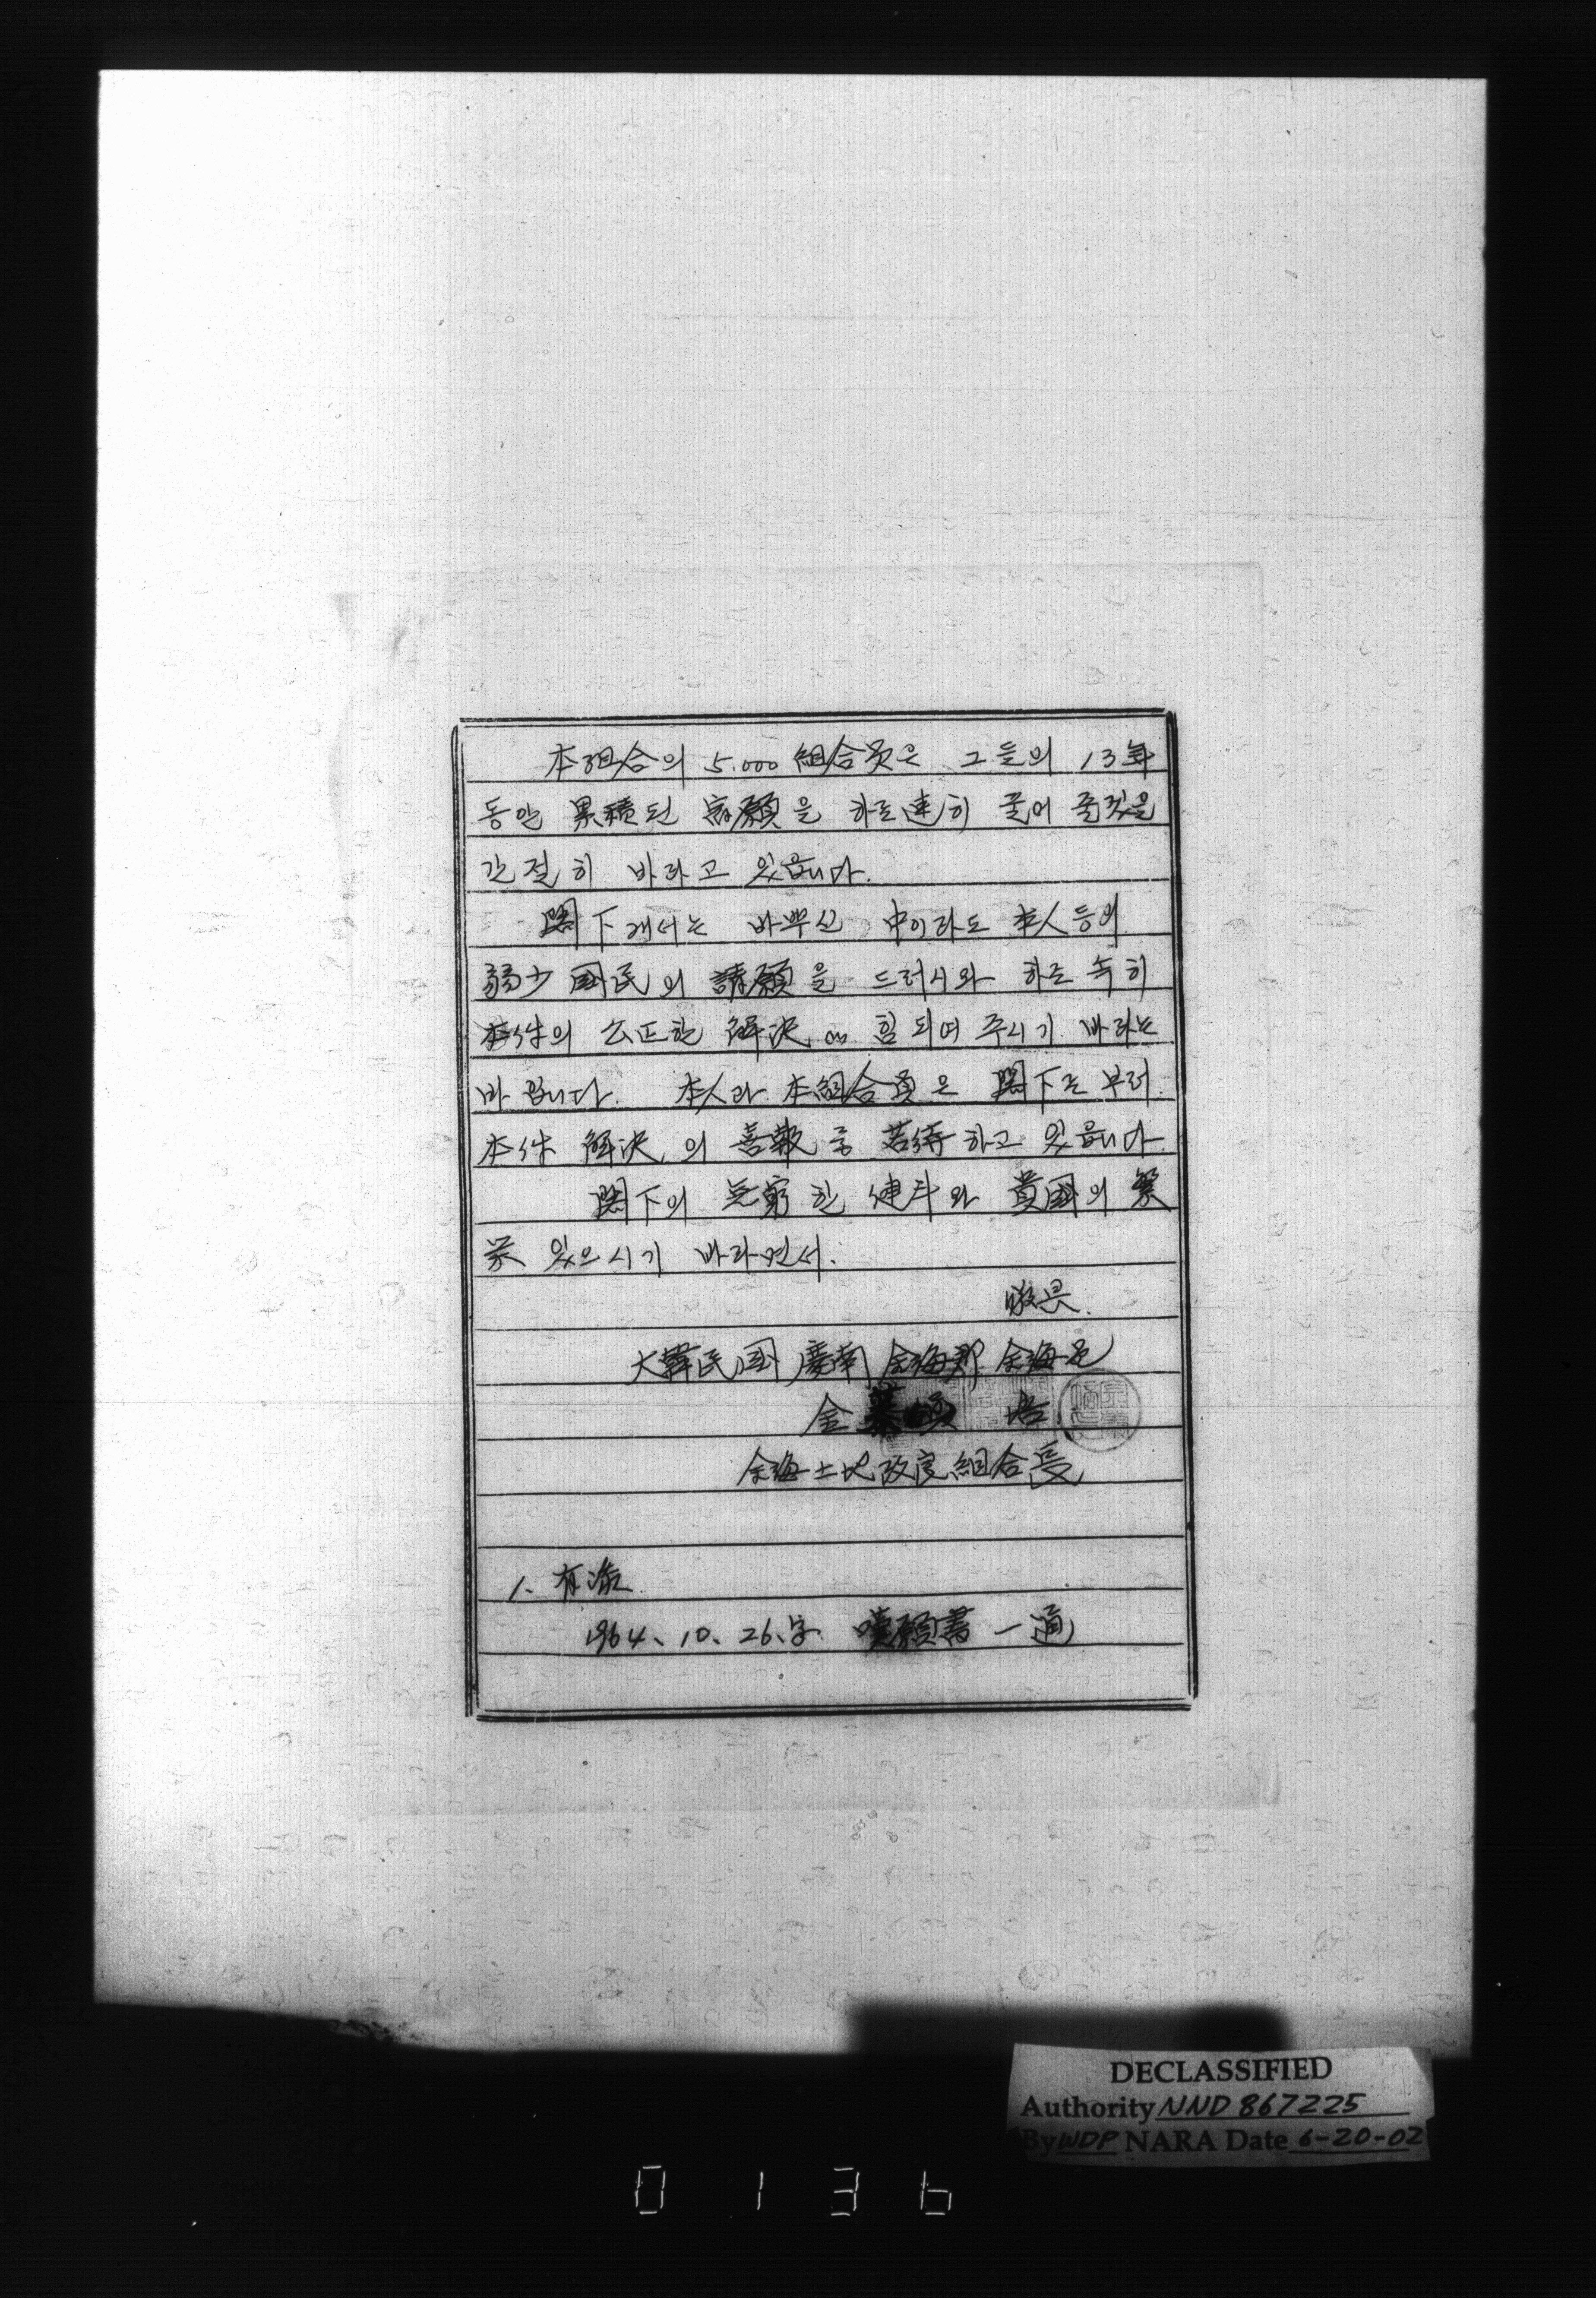 本組合의 5.000 組合員은 그들의 13年
동안 累積된 宿願을 하로速히 풀어 줄것을
간절히 바라고 있읍니다.
閣下께서는 바쁘신 中이라도 本人등의
弱少國民의 請願을 드러시와 하로속히
本件의 公正한 解決에 힘되여 주시기 바라는
바입니다. 本人과 本組合員은 閣下로부터
本件 解決의 喜報를 苦待하고 있읍니다.
閣下의 無窮한 健斗와 貴國의 繁
栄 있으시기 바라면서.
敬具.
大韓民国 慶南 金海郡 金海邑
金
金海土地改良組合長
1. 有添
1964. 10. 26.字 嘆願書 一通
DECLASSIFIED
Authority NND 867225
By WDP NARA Date 6-20-02
0136